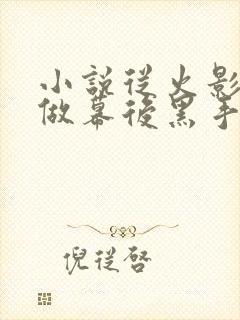 小說從火影
做幕後黑手
倪從啓